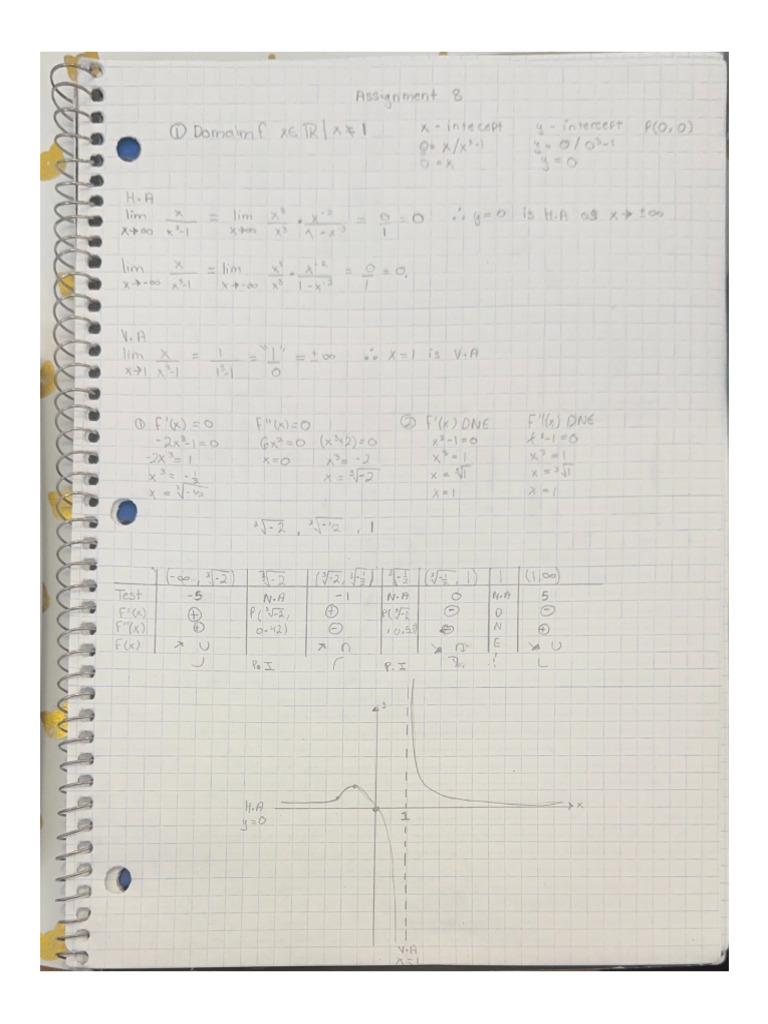 Assignment 8
① Domain of x∈ℝ | x≠1 x-intecept y-intercept P(0,0)
0= x/x³-1 y= 0/0³-1
0=x y=0
H.A
lim x→∞ x/x³-1 = lim x→∞ x³/x³ · x⁻²/1-x⁻³ = 0/1 = 0 ∴ y=0 is H.A as x→±∞
lim x→-∞ x/x³-1 = lim x→-∞ x³/x³ · x⁻²/1-x⁻³ = 0/1 = 0.
V.A
lim x→1 x/x³-1 = 1/1³-1 = "1"/0 = ±∞ ∴ x=1 is V.A
① F'(x)=0 F"(x)=0 ② F'(x) DNE F"(x) DNE
-2x³-1=0 6x²=0 (x³+2)=0 x³-1=0 x³-1=0
-2x³=1 x=0 x³=-2 x³=1 x³=1
x³=-½ x=³√-2 x=³√1 x=³√1
x=³√-½ x=1 x=1
³√-2 , ³√-½ , 1
(-∞, ³√-2) ³√-2 (³√-2, ³√-½) ³√-½ (³√-½, 1) 1 (1,∞)
Test -5 N.A -1 N.A 0 N.A 5
F'(x) + P(³√-2, + P(³√-½ - D -
F"(x) + 0.42) - , 0.53 - N +
F(x) ↗ ∪ ↗ ∩ ↘ ∩ E ↘ ∪
P.I P.I !
H.A
y=0
1
x
V.A
x=1